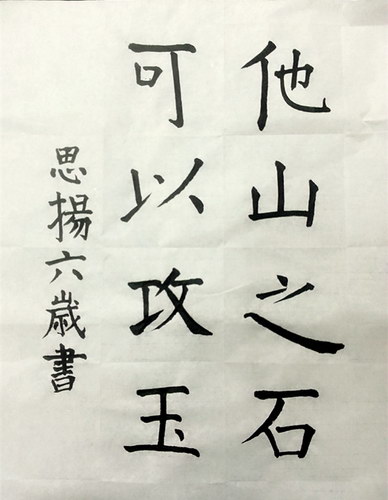 他山之石
可以攻玉
思揚六歲書